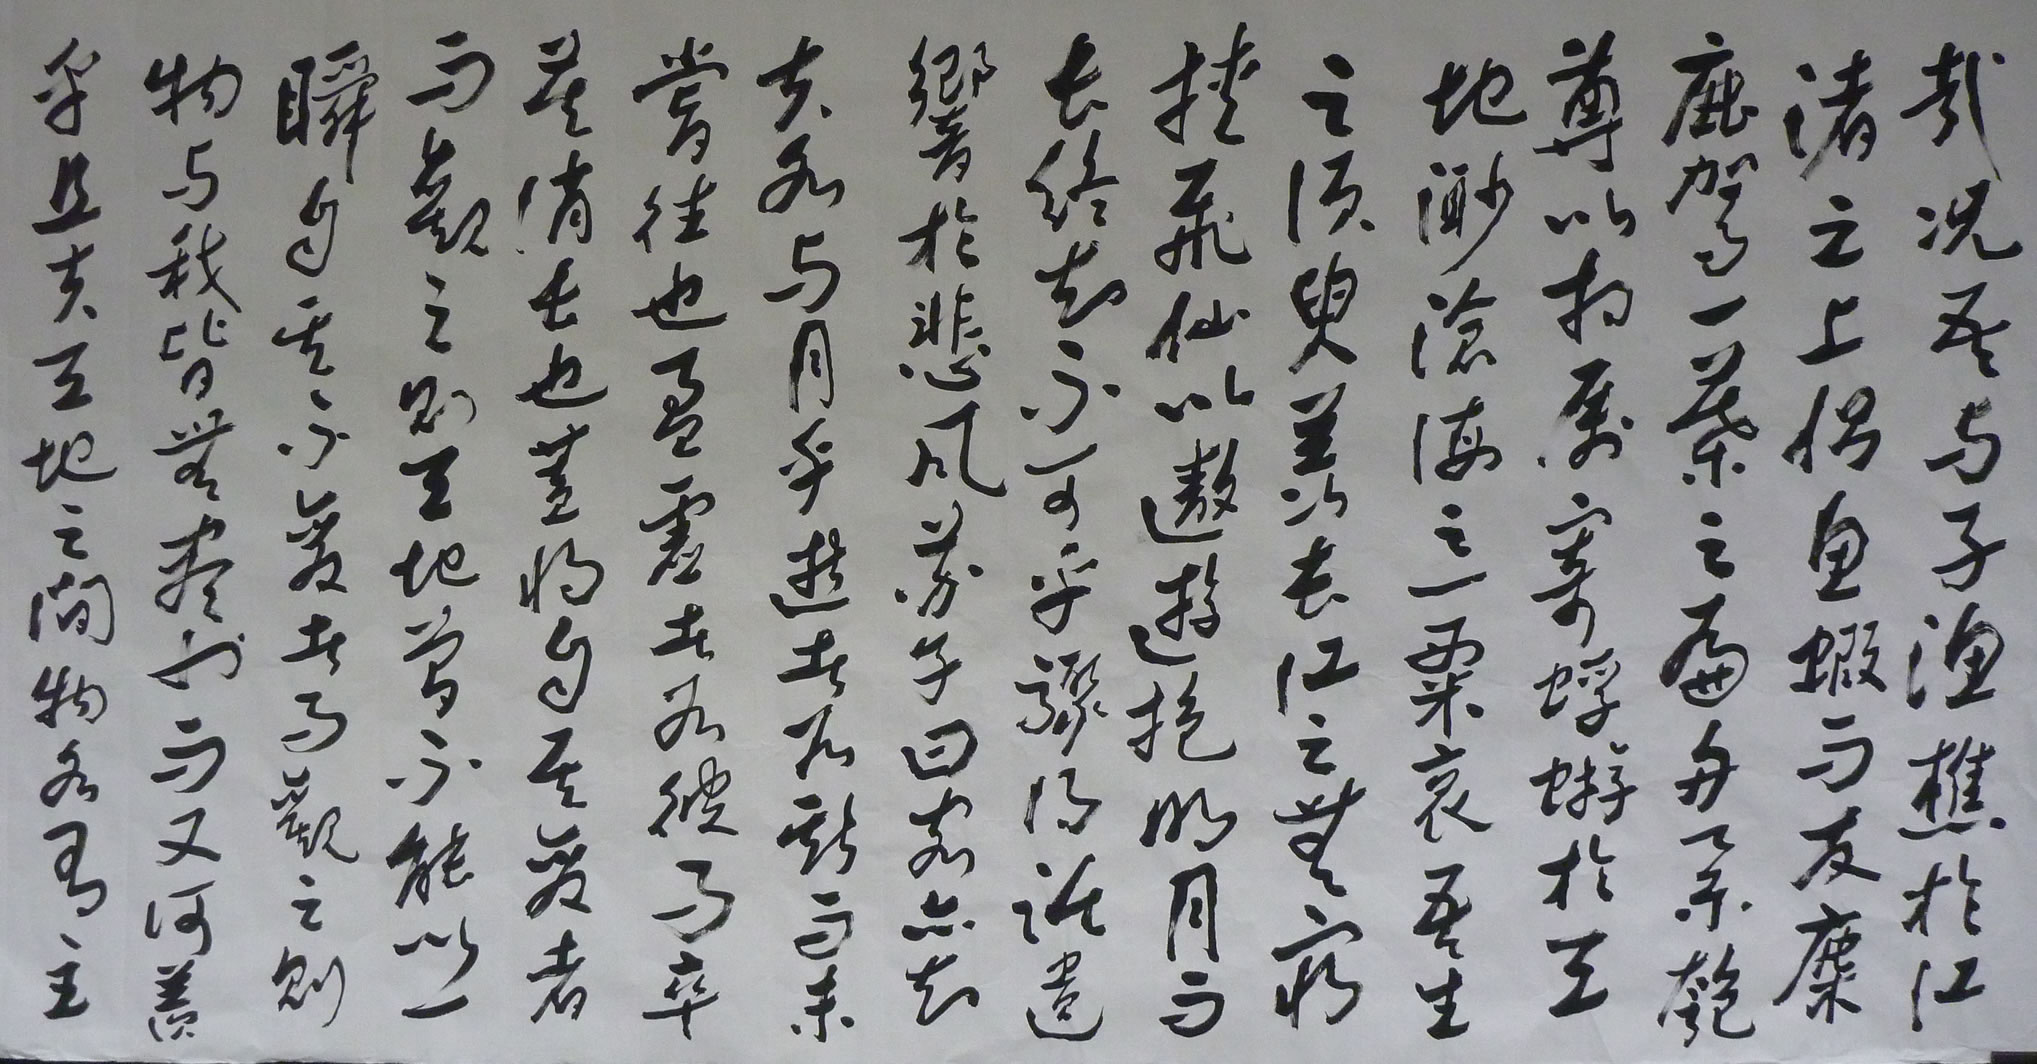 哉况吾与子渔樵於江
渚之上侣鱼蝦而友麋
鹿驾一葉之扁舟举匏
尊以相属寄蜉蝣於天
地渺滄海之一粟哀吾生
之须臾羡长江之無窮
挟飛仙以遨遊抱明月而
长终知不可乎骤得託遺
響於悲风蘇子曰客亦知
夫水与月乎逝者如斯而未
嘗往也盈虚者如彼而卒
莫消长也蓋将自其变者
而觀之则天地曾不能以一
瞬自其不变者而觀之则
物与我皆無盡也而又何羡
乎且夫天地之间物各有主